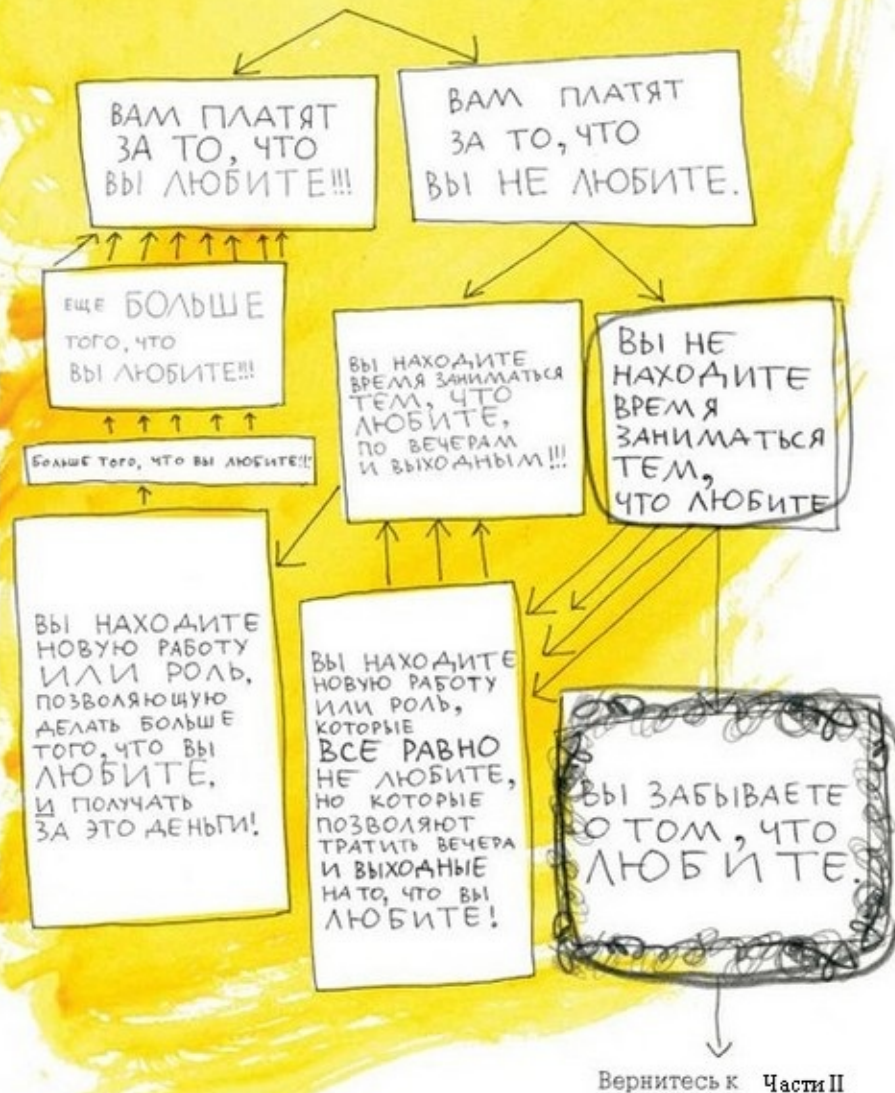 ВАМ ПЛАТЯТ
ЗА ТО, ЧТО
ВЫ ЛЮБИТЕ!!!
ВАМ ПЛАТЯТ
ЗА ТО, ЧТО
ВЫ НЕ ЛЮБИТЕ.
ЕЩЕ БОЛЬШЕ
ТОГО, ЧТО
ВЫ ЛЮБИТЕ!!!
БОЛЬШЕ ТОГО, ЧТО ВЫ ЛЮБИТЕ!!!
ВЫ НАХОДИТЕ
ВРЕМЯ ЗАНИМАТЬСЯ
ТЕМ, ЧТО
ЛЮБИТЕ,
ПО ВЕЧЕРАМ
И ВЫХОДНЫМ!!!
ВЫ НЕ
НАХОДИТЕ
ВРЕМЯ
ЗАНИМАТЬСЯ
ТЕМ,
ЧТО ЛЮБИТЕ
ВЫ НАХОДИТЕ
НОВУЮ РАБОТУ
ИЛИ РОЛЬ,
ПОЗВОЛЯЮЩУЮ
ДЕЛАТЬ БОЛЬШЕ
ТОГО, ЧТО ВЫ
ЛЮБИТЕ,
И ПОЛУЧАТЬ
ЗА ЭТО ДЕНЬГИ!
ВЫ НАХОДИТЕ
НОВУЮ РАБОТУ
ИЛИ РОЛЬ,
КОТОРЫЕ
ВСЕ РАВНО
НЕ ЛЮБИТЕ,
НО КОТОРЫЕ
ПОЗВОЛЯЮТ
ТРАТИТЬ ВЕЧЕРА
И ВЫХОДНЫЕ
НА ТО, ЧТО ВЫ
ЛЮБИТЕ!
ВЫ ЗАБЫВАЕТЕ
О ТОМ, ЧТО
ЛЮБИТЕ.
Вернитесь к Части II